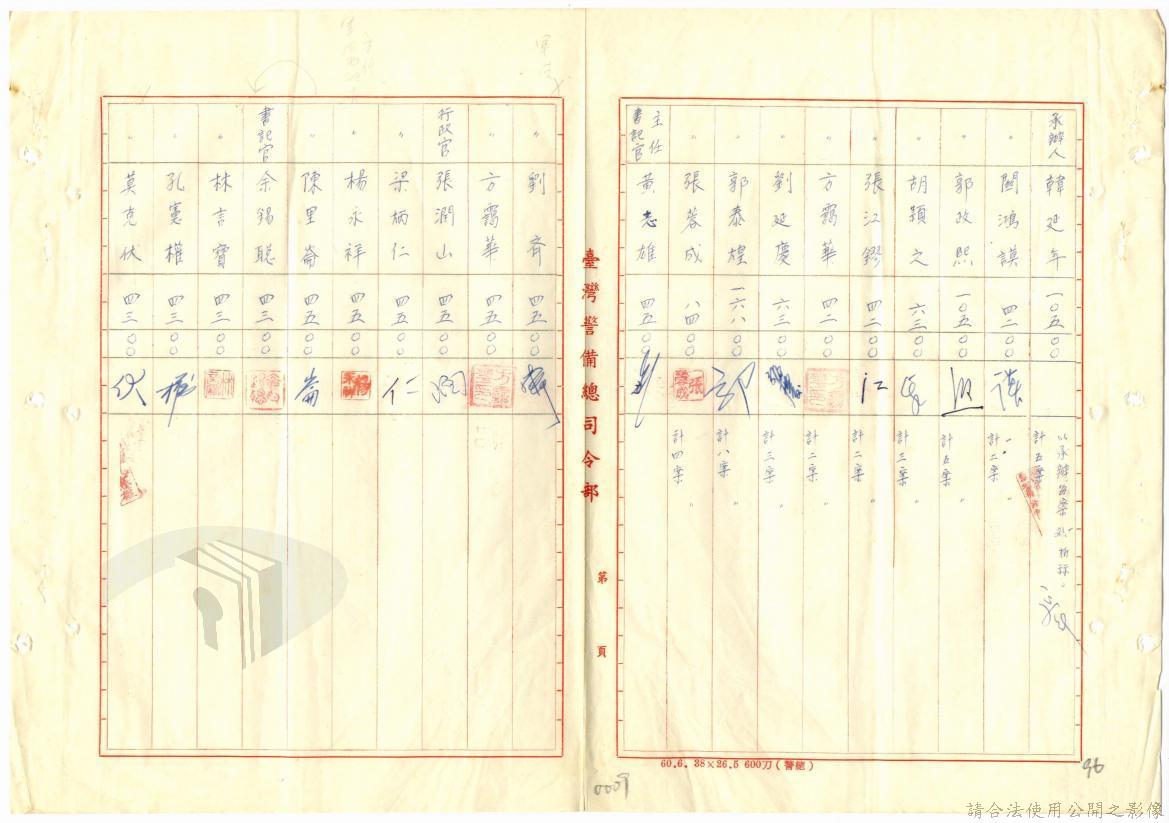 承辦人 韓延年 一〇五〇〇 計五案
以承辦每案
〃 閻鴻謨 四二〇〇 計二案 〃
〃 郭政熙 一〇五〇〇 計五案 〃
〃 胡穎之 六三〇〇 計三案 〃
〃 張江鏐 四二〇〇 計二案 〃
〃 方靄華 四二〇〇 計二案 〃
〃 劉延慶 六三〇〇 計三案 〃
〃 郭泰煌 一六八〇〇 計八案 〃
〃 張蓉成 八四〇〇 計四案 〃
主任書記官 黃志雄 四五〇〇
臺灣警備總司令部
第 頁
〃 劉齊 四五〇〇
〃 方靄華 四五〇〇
行政官 張潤山 四五〇〇
〃 梁炳仁 四五〇〇
〃 楊永祥 四五〇〇
〃 陳里崙 四五〇〇
書記官 余錫聰 四三〇〇
〃 林言寶 四三〇〇
〃 孔憲權 四三〇〇
〃 莫克伏 四三〇〇
60.6. 38×26.5 600刀(警總)
0009
96
請合法使用公開之影像